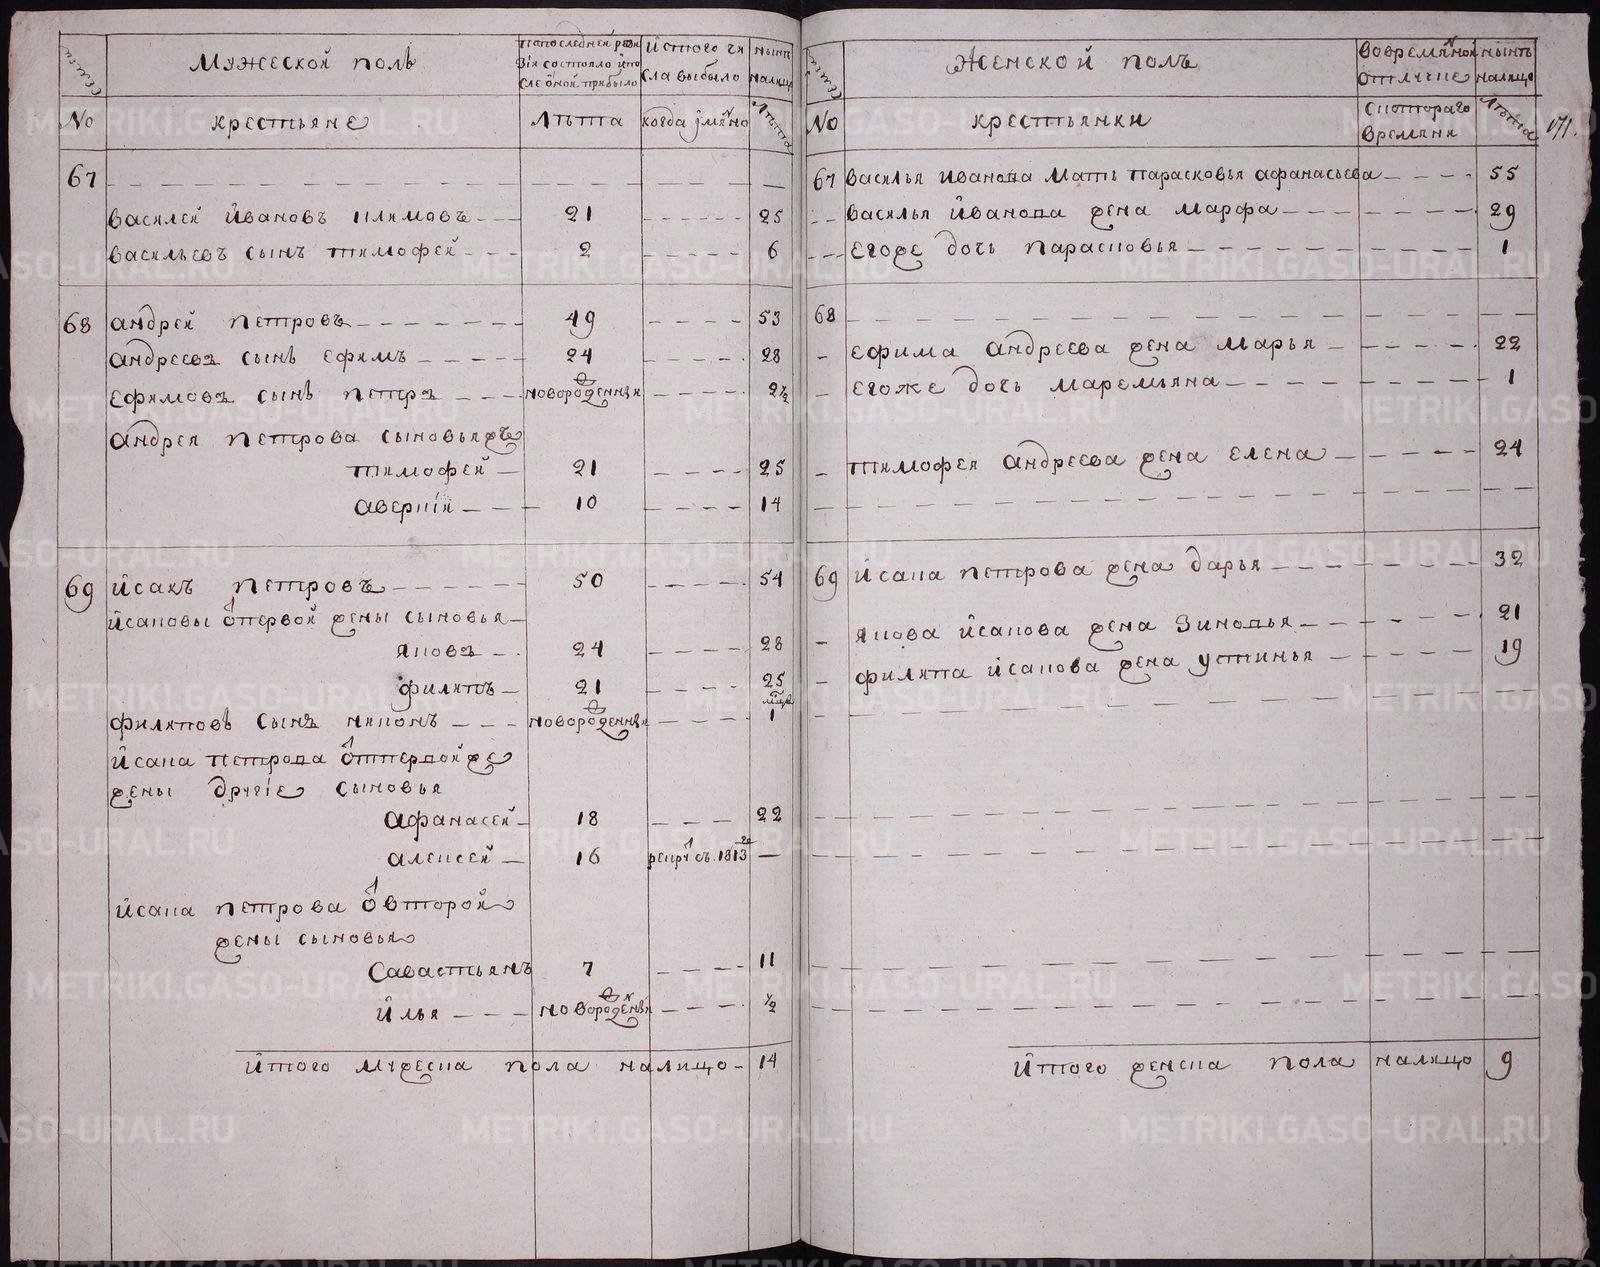 семьи
Мужеской полъ
Попоследней реви
зiи состояло ипо
сле оной прибыло
Истого чи
сла выбыло
нынѣ
налицо
No
крестьяне
Лѣта
когда имяно
Лѣта
67
Василей Ивановъ 21 25
Васильевъ сынъ тимофей 2 6
68 андрей петровъ 49 53
андреевъ сынъ ефимъ 24 28
ефимовъ сынъ петръ новорожденный 2½
андрея петрова сыновьяжъ
тимофей 21 25
аверкiй 10 14
69 Исакъ петровъ 50 54
Исаковы отпервой жены сыновья
яковъ 24 28
филипъ 21 25
филиповъ сынъ никонъ новорожденный 1
Исака петрова отпервойже
жены другiе сыновья
афанасей 18 22
алексей 16 рекру съ. 1813го
Исака петрова отвторой
жены сыновья
Савастьянъ 7 11
Илья новорожденный ½
Итого мужеска пола налицо 14
семьи
Женской полъ
Вовремяной
отлучке
нынѣ
налицо
171.
No
крестьянки
Скотораго
времяни
Лѣта
67 Василья Иванова мать парасковья афанасьева 55
Василья Иванова жена марфа 29
Егоже дочь парасковья 1
68
Ефима андреева жена марья 22
Егоже дочь маремьяна 1
тимофея андреева жена елена 24
69 Исака петрова жена дарья 32
якова исакова жена Зиновья 21
филипа исакова жена устинья 19
Итого женска пола налицо 9